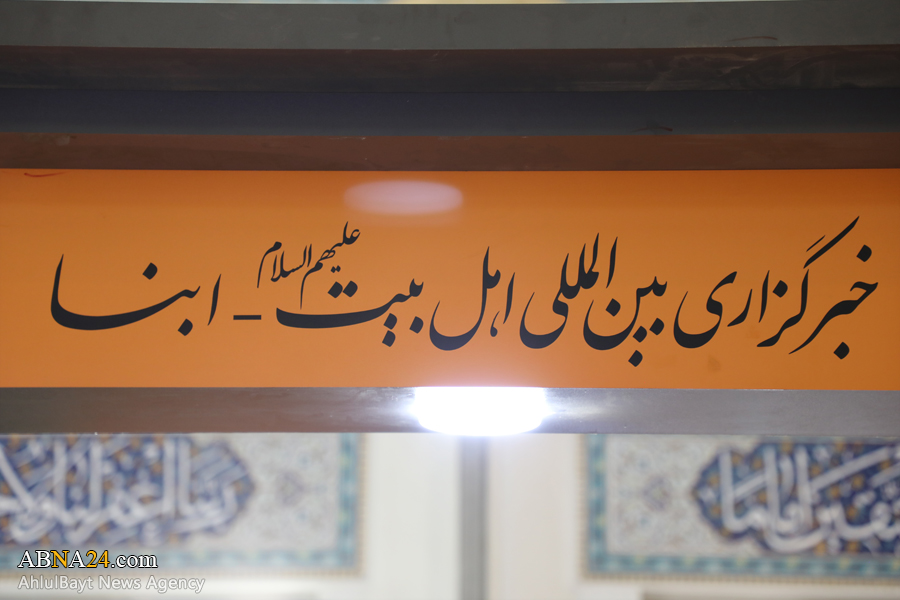 خبرگزاری بین‌المللی اهل بیت علیهم السلام - ابنا
ABNA24.com
AhlulBayt News Agency